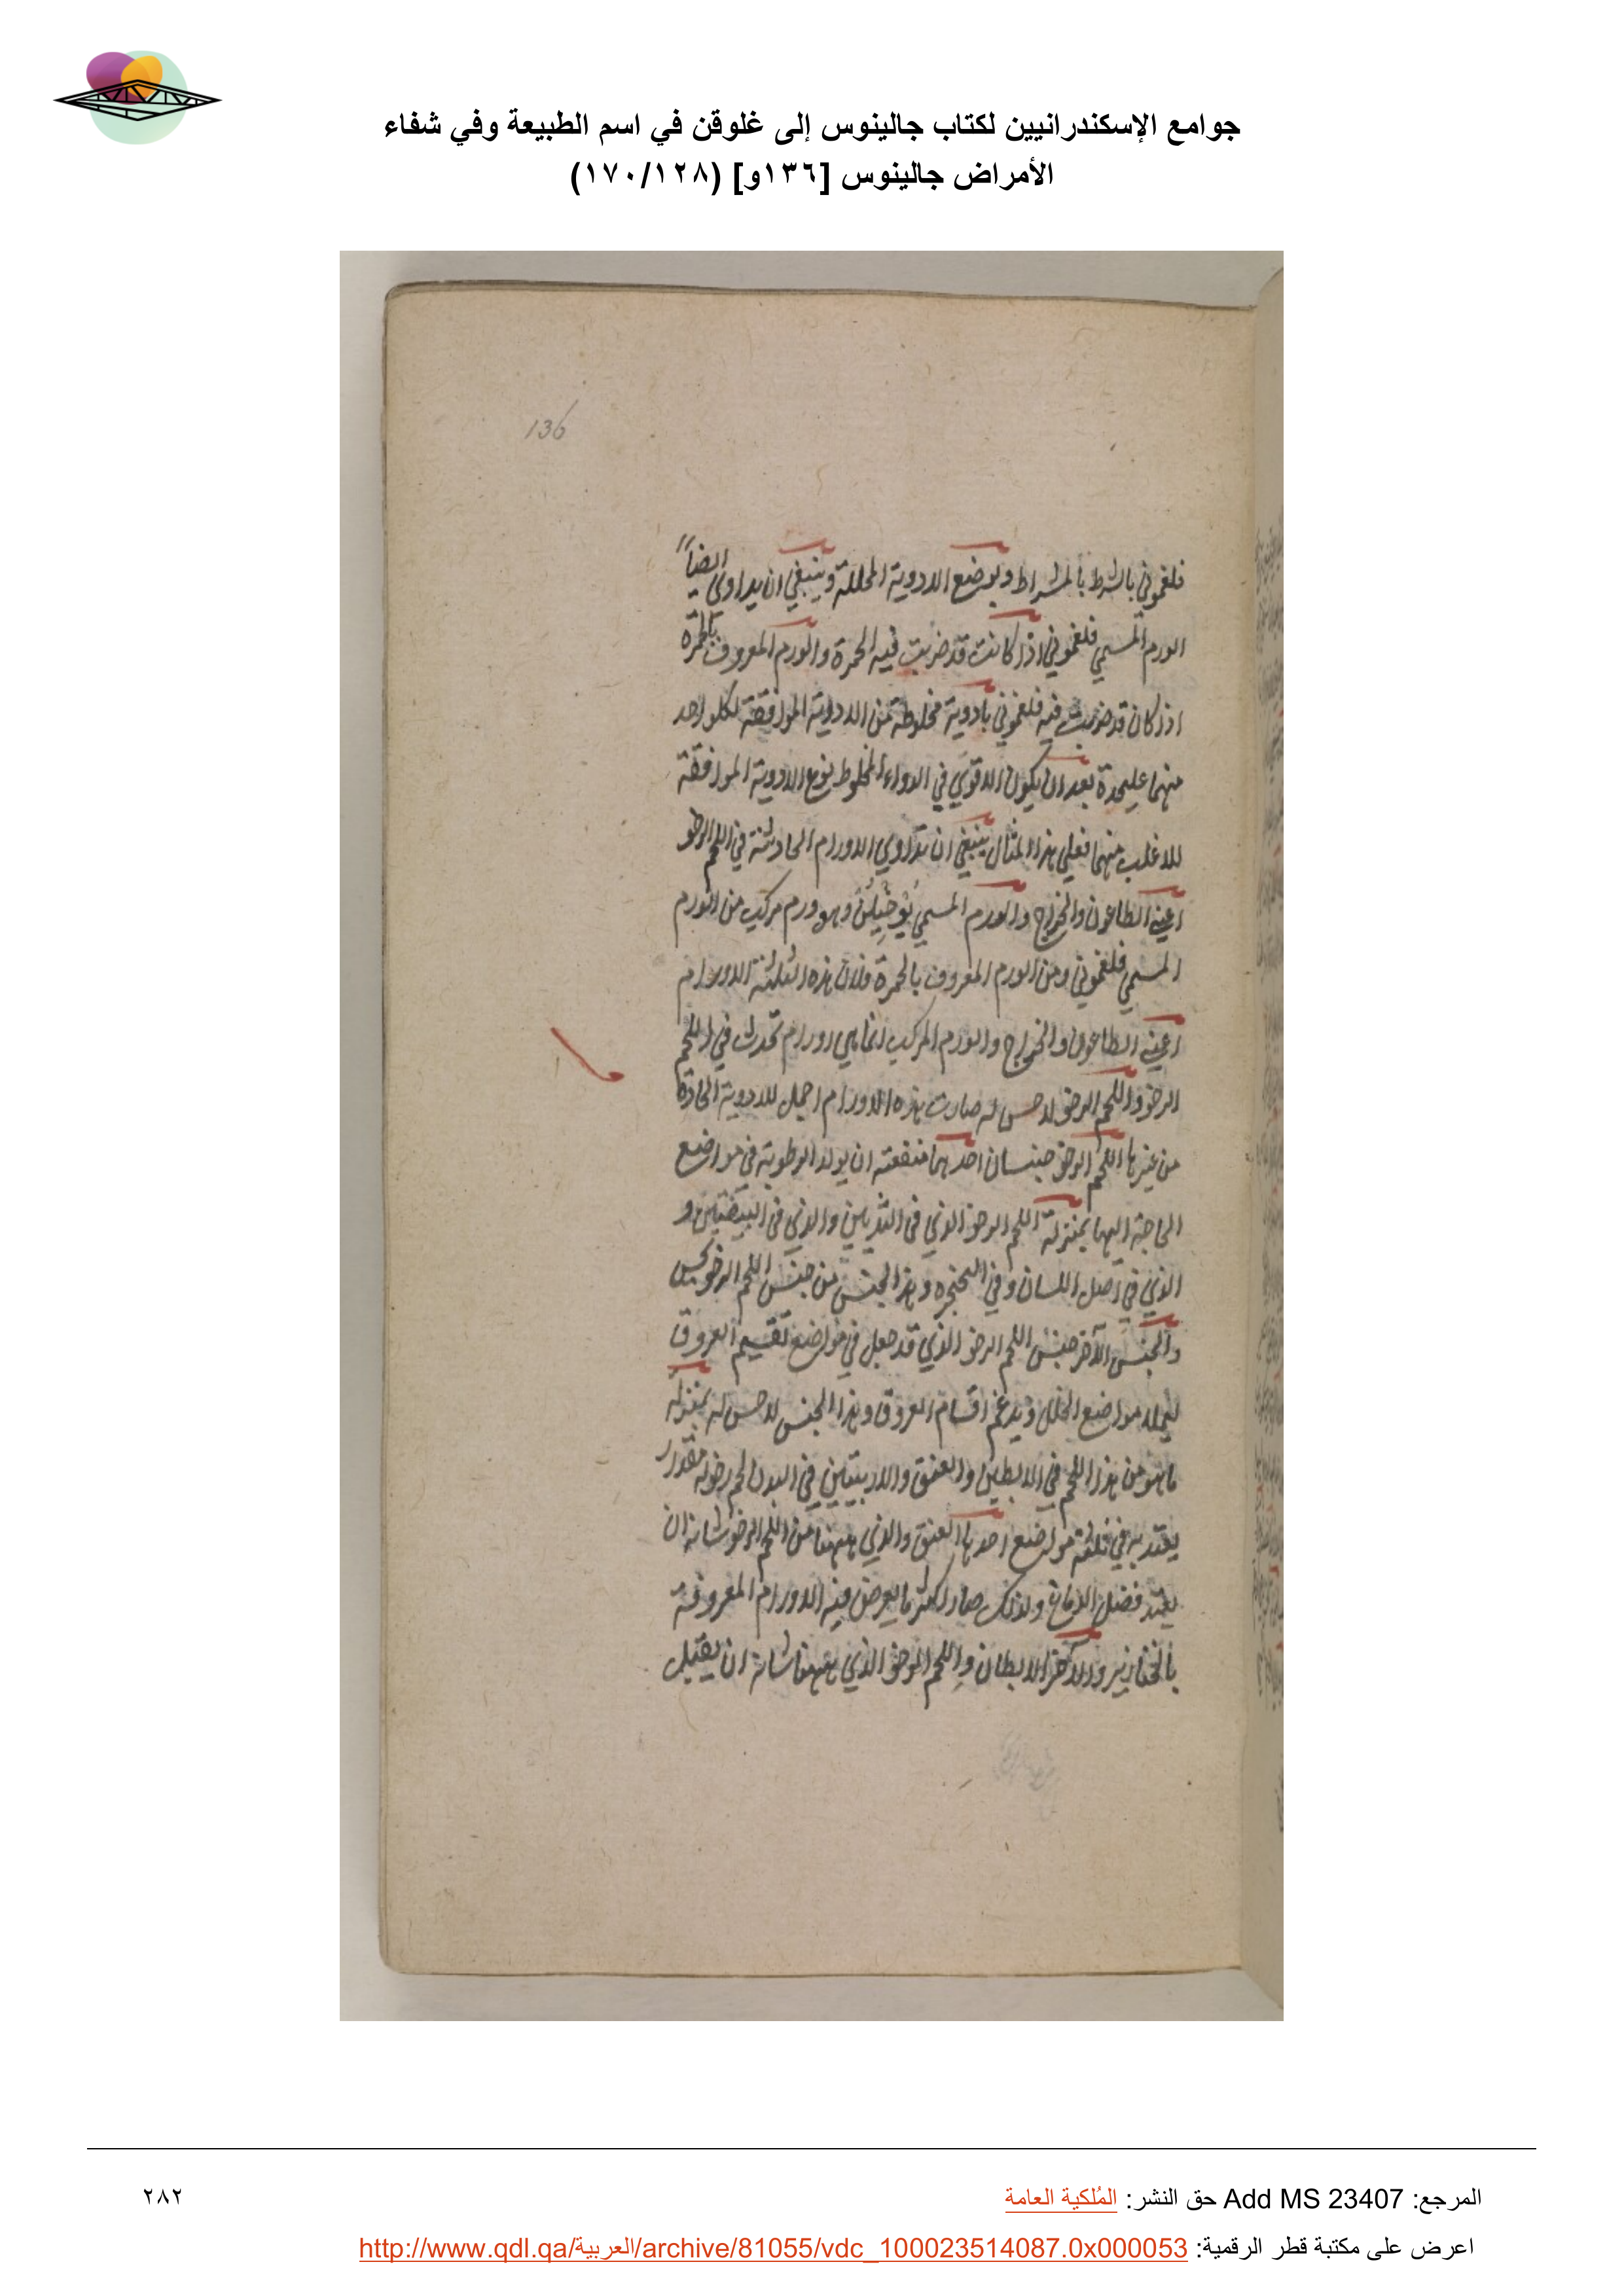 جوامع الإسكندرانيين لكتاب جالينوس إلى غلوقن في اسم الطبيعة وفي شفاء
الأمراض جالينوس [١٣٦و] (١٧٠/١٢٨)
136
فلغموني بالشرط بالمشراط وبوضع الادوية المحللة وينبغي ان يداوى ايضاً
الورم المسمي فلغموني اذا كانت قد ضربت فيه الحمرة والورم المعروف بالحمرة
اذا كان قد ضربت فيه فلغموني بادوية مخلوطة من الادوية الموافقة لكلواحد
منهما عليحدة بعد ان يكون الاقوي في الدواء المخلوط نوع الادوية الموافقة
للاغلب منهما فعلي هذا المثال ينبغي ان تداوي الاورام الحادثة في اللحم الرخو
اعني الطاعون والخراج والورم المسمي وهو ورم مركب من الورم
المسمي فلغموني ومن الورم المعروف بالحمرة ولان هذه الثلثة الاورام
اعني الطاعون والخراج والورم المركب انما هي اورام تحدث في اللحم
الرخو واللحم الرخو لا حس له صارت هذه الاورام احمل للادوية الحادة
من غيرها اللحم الرخو جنسان احدهما منفعته ان يولد الرطوبة في مواضع
الحاجة اليها بمنزلة اللحم الرخو الذي في الثديين والذي في البيضتين و
الذي في اصل اللسان وفي الحنجره وهذا الجنس من جنس اللحم الرخو يحس
والجنس الآخر جنس اللحم الرخو الذي قد جعل في مواضع تقسيم العروق
ليملا مواضع الخلل ويدعم اقسام العروق وهذا الجنس لا حس له بمنزلة
ما هو من هذا اللحم في الابطين والعنق والاربيتين في البدن لحم رخو له مقدار
يعتد به في ثلثة مواضع احدها العنق والذي هيهنا من اللحم الرخو شانه ان
فضل الدماغ ولذلك صار اكثر ما يعرض فيه الاورام المعروفة
بالخنازير والآخر الابطان واللحم الرخو الذي هيهنا شانه ان يقبل
المرجع: Add MS 23407 حق النشر: المُلكية العامة
٢٨٢
اعرض على مكتبة قطر الرقمية: http://www.qdl.qa/العربية/archive/81055/vdc_100023514087.0x000053